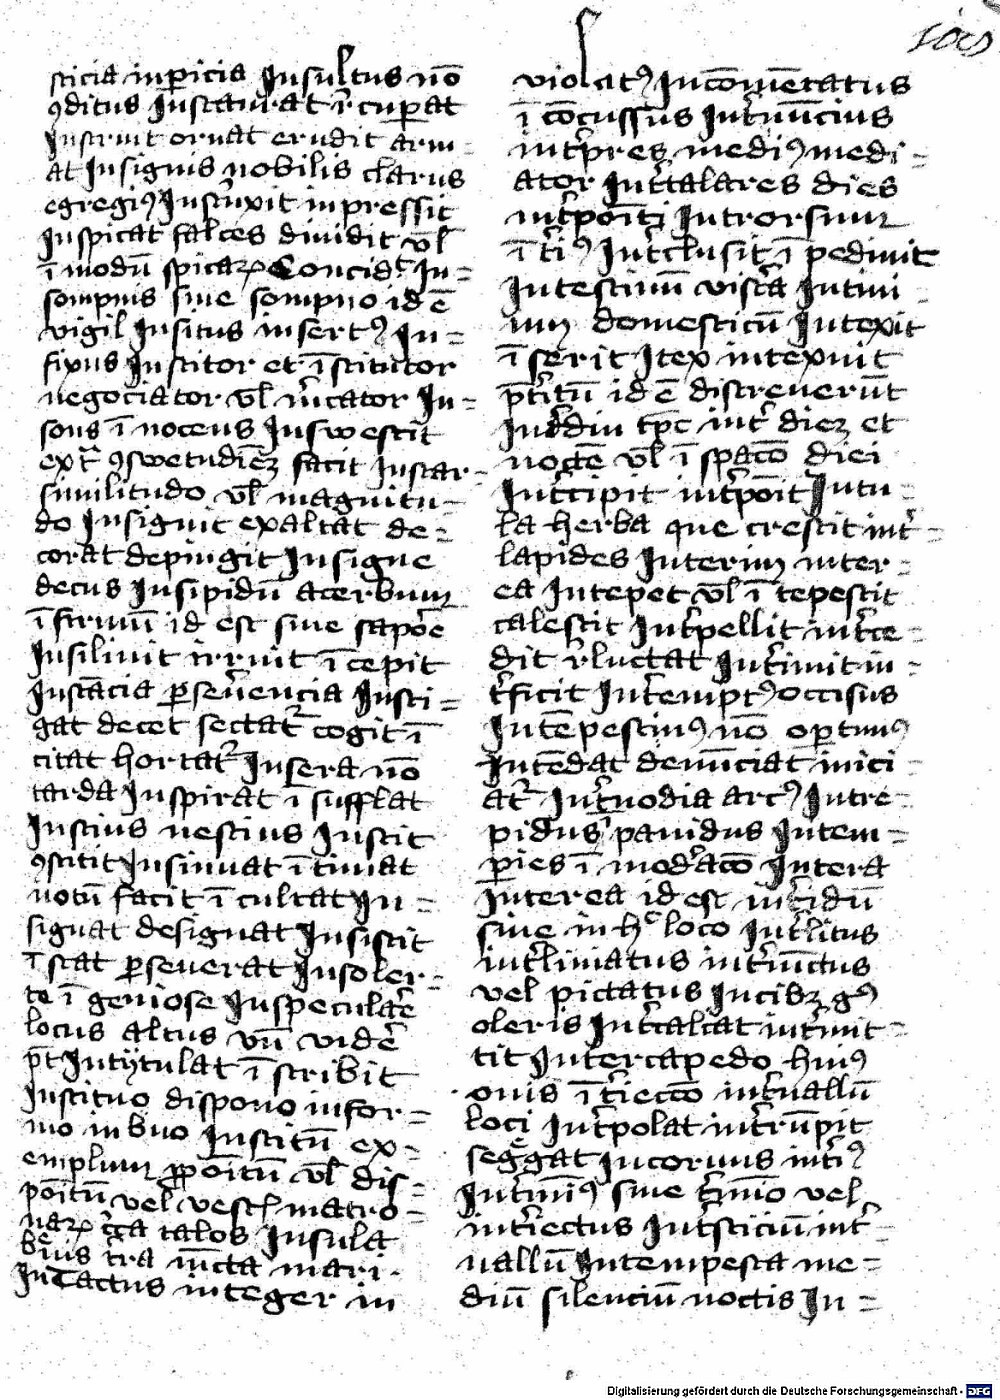 sticia inpericia Insultus nō
ꝯditus Instaurat ī cuperat
Instruit ornat erudit arm
at Insignis nobilis clarus
egregiꝰ Instinxit inpressit
Inspicat falces diuidit vl̄
ī modū spicaꝝ Concidt̛ In=
sompnis siue sompno id ē
vigil Insitus insertꝰ In=
fixus Institor et īstitutor
negociator vl̄ m̛cator In=
sons ī nocens Inswescit
ext̄ ꝯswetudīeꝫ facit Instar
similitudo vl̄ magnitu=
do Insignit exaltat de=
corat depingit Insigne
decus Insipidū acerbum
ī firmū id est sine sapōe
Insiliuit irruit īcepit
Instācia ꝑseưencia Insti=
gat decet sectat̛ cogit ī
citat hortat̛ Insera nō
tarda Inspirat ī sufflat
Instius nescius Instit
ꝯstitit Insinuat ītimat
notū facit ī culcat In=
signat designat Insistit
ī stat ꝑseuerat Insoler=
te īgeniose Inspeculac̛
locus altus vn̄ vider̛
pt̄ Intytulat īscribit
Instituo dispono infor=
mo inbuo Institū ex=
emplum ꝓpoītū vl̄ dis=
poītū vel vest̛ matro=
naꝝ talos Insula
tra iūcta mari
Intactus integer in
violatꝰ Incōmētatus
ī cōcussus Int̛nūcius
int̛pres mediꝰ medi=
ator Int̛talares dies
int̛poīti Introrsum
ī t̛iꝰ Int̛clusit ī pediuit
Intestinū visc̛a Intimi
domesticū Intexit
īserit Itex intexuit
pt̛itū id ē discreuerūt
Int̛diu tp̄e int̛ dieꝫ et
noctē vl̄ ī spacō diei
Int̛cipit int̛poīt Intu=
la herba que crescit int̛=
lapides Interim inter=
ea Intepet vl̄ ī tepescit
calescit Int̛pellit int̛ce=
dit r̛luctat Int̛imit in=
t̛ficit Int̛emptꝰ occisus
Intēpestiuꝰ nō oportunꝰ
Intēdat denūciat mici
at̛ Int̛nodia arcꝰ Intre=
pidus pauidus Intem=
peries ī mod̛acō Intera
interea id est int̛idū
siue in hͦ loco Int̛litus
int̛liniatus int̛nūctus
vel pictatus Incibꝫ gꝰ
oleris Int̛calcat int̛mit=
tit Intercapedo huiꝰ
onis īt̛iectō int̛uallū
loci Int̛polat int̛rūpit
seg̛gat Incornus int̛iꝰ
Int̛mīꝰ siue t̛mīo vel
int̛iectus Int̛sticiū int̛=
uallū Intempesta me=
diū silenciū noctis In=
Digitalisierung gefördert durch die Deutsche Forschungsgemeinschaft - DFG